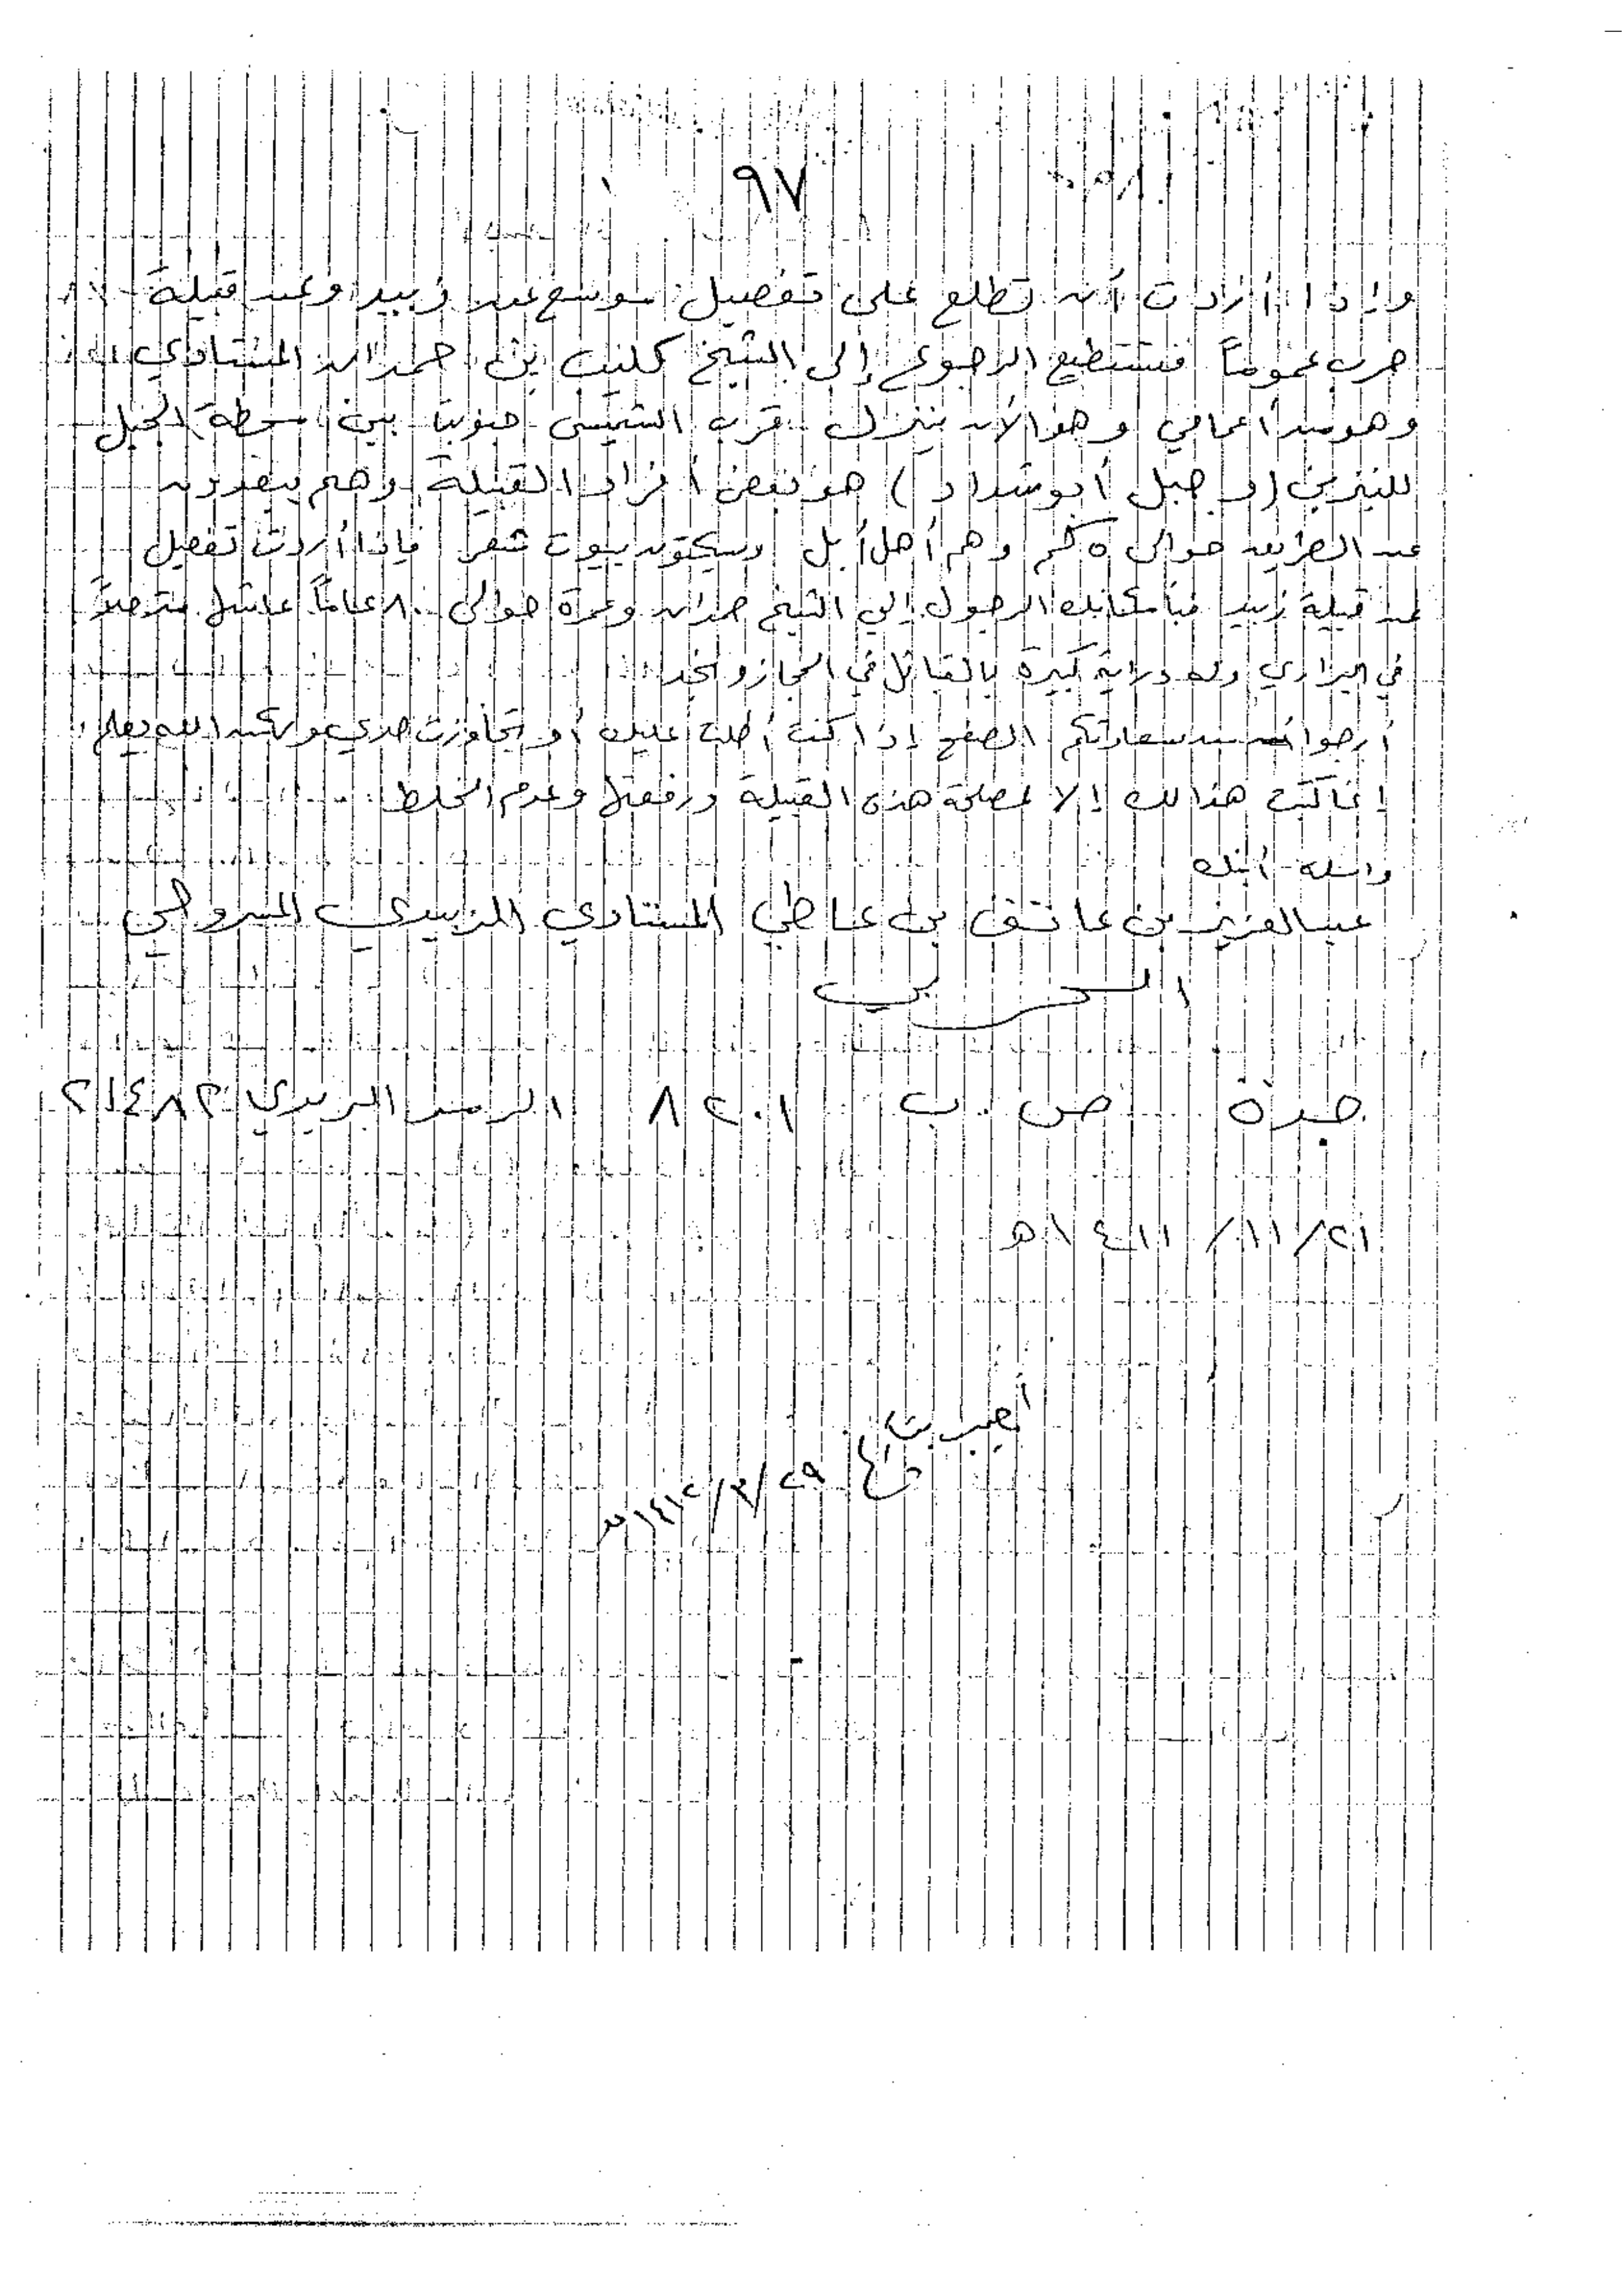 ٩٧
وإذا أردت أن تطلع على تفصيل موسع عن زبيد وعن قبيلة
حرب عموماً فتستطيع الرجوع إلى الشيخ كليب بن حمدان المستادي
وهو من أعمامي وهو الآن ينزل قرب الشميسي جنوباً بين محطة الجبل
للبنزين (و جبل أبو شداد) هو وبعض أفراد القبيلة وهم يبعدون
عن الطريق حوالي ٥ كم وهم أهل أبل ويسكنون بيوت شعر فإذا أردت تفصيل
عن قبيلة زبيد فبأمكانك الوصول إلى الشيخ حمدان وعمره حوالي ٨٠ عاماً عاشها مترحلاً
في البراري وله دراية كبيرة بالقبائل في الحجاز ونجد
أرجوا من سعادتكم الصفح إذا كنت أطلت عليك أو تجاوزت حدي ولكن الله يعلم
إنما كتبت هذا لك إلا لمصلحة هذه القبيلة ورفعتها وعدم الخلط
وأسلم أبنك
عبدالعزيز بن عاتق بن عاطي المستادي الزبيدي المسروحي
الحربي
جدة ص . ب ٨٢٠١ الرمز البريدي ٢١٤٨٢
٢١/ ١١/ ١٤١١هـ
أجيب
٢٩/٣/١٤١٢هـ